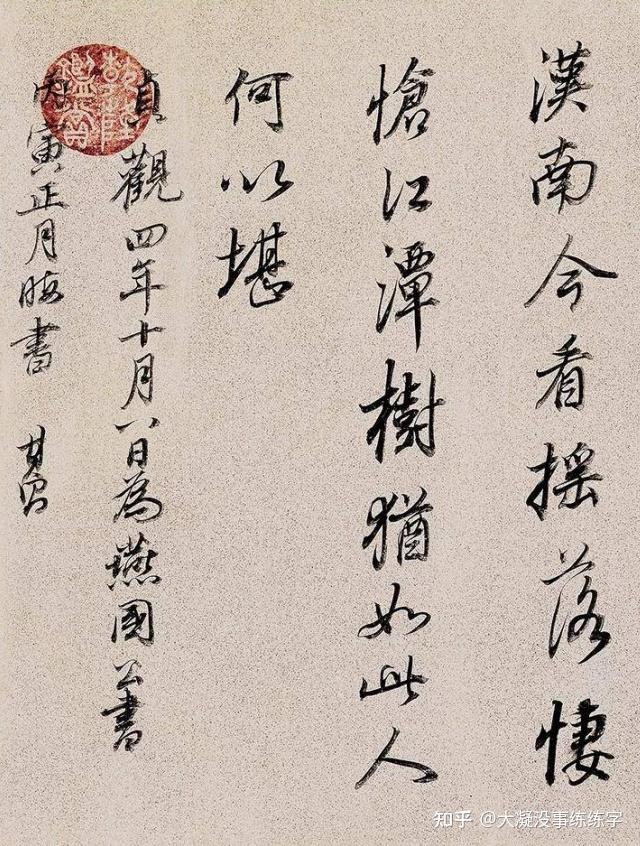 漢南今看搖落悽
愴江潭樹猶如此人
何以堪
貞觀四年十月八日為燕國公書
丙寅正月晦書
知乎 @大凝没事练练字